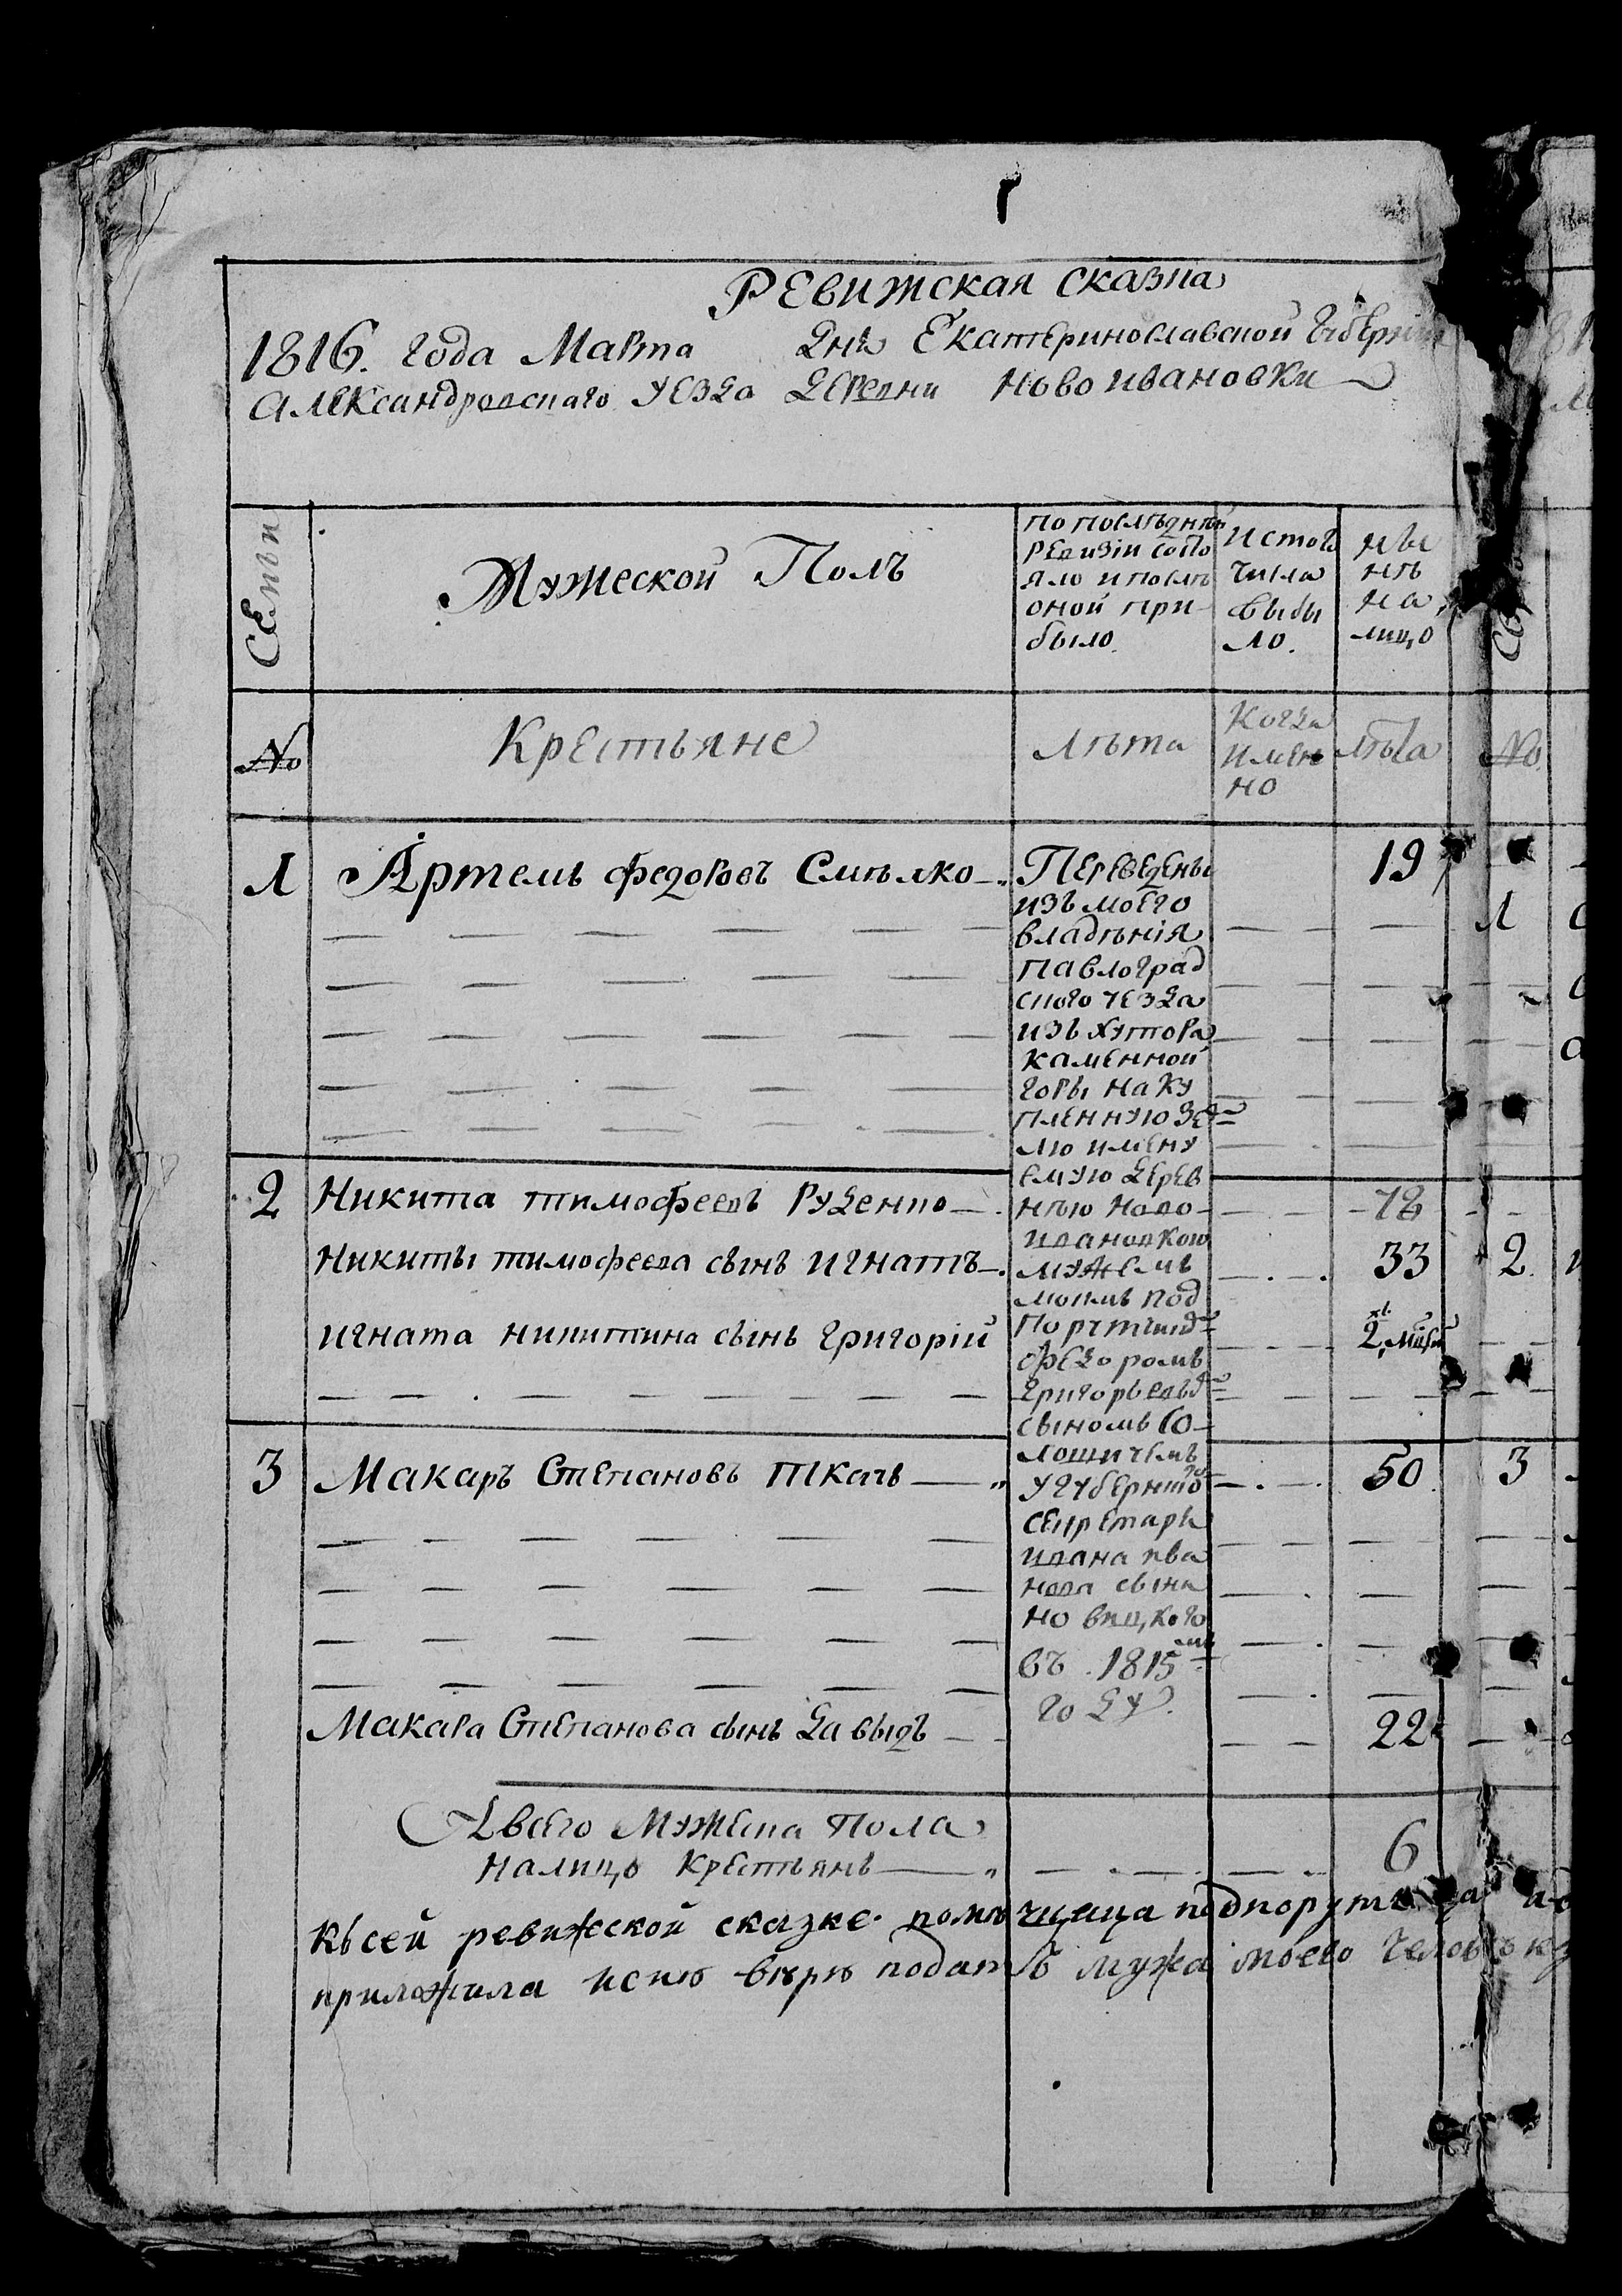 Ревижская сказка
1816. года Марта дня Екатеринославской Губерніи
Александровскаго уезда деревни Новоивановки
Семьи
Мужеской Полъ
по последней ревизіи состояло и посль оной прибыло.
Ис того числа выбыло.
Ны не на лицо
№
Крестьяне
Лѣта
Когда имен но
лѣта
№
1 Артемъ федоровъ Смѣлко 19
Переведены
изъ моего
владѣнія
Павлоград
ского уезда
изъ хутора
каменной
горы на ку
пленную зе
лю имену
емую дерев
нѣю Ново
ивановкою
мужемъ
моимъ под
Поручик
Федоромъ
Григорьевы
сыномъ
у губернско
секретаря
ивана ива
нова сына
но вицкого
въ 1815
году.
1
2 Никита тимофеевъ Руденко 78
Никиты тимофеева сынъ игнатъ 33
2
игната никитина сынъ григорій 2
3 Макаръ Степановъ Ткачь 50
3
Макара Степанова сынъ давыдъ 22
А всего Мужеска пола
налицо Крестьянъ 6
Къ сей ревижской сказке помѣщица подпоруч
приложила и сию вѣрю подать мужа моего человѣку